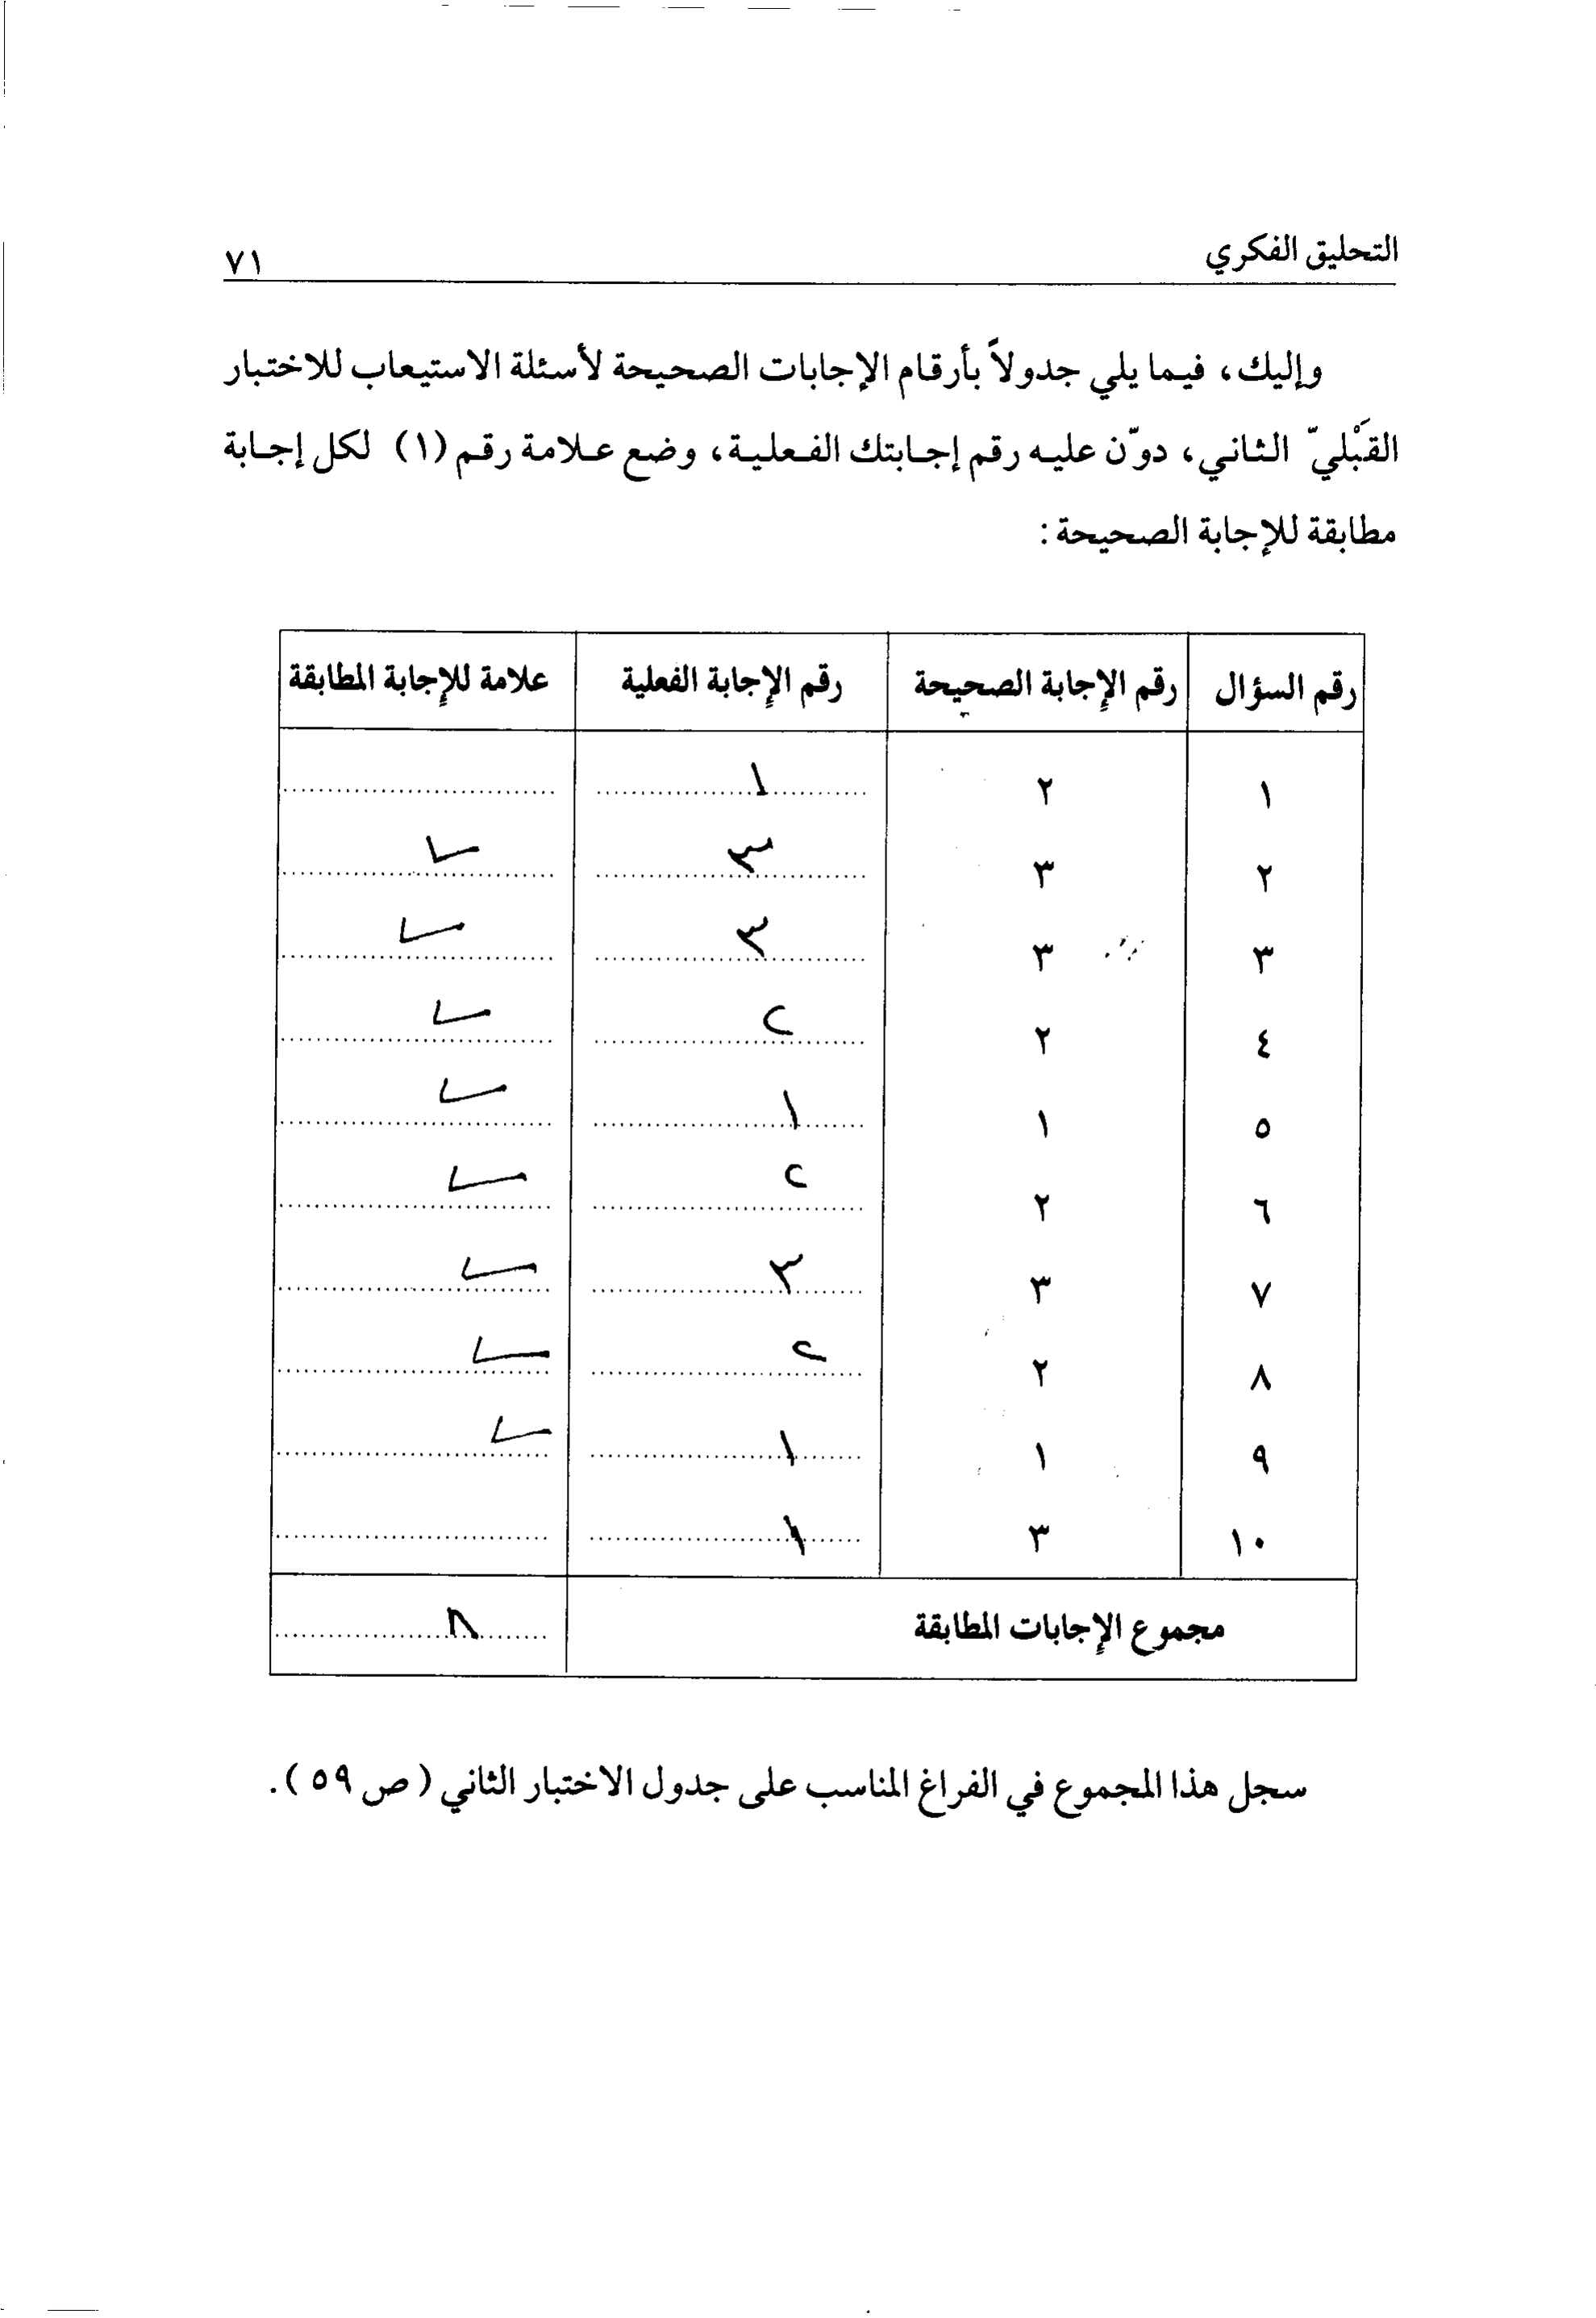 التحليق الفكري ٧١
وإليك، فيما يلي جدولاً بأرقام الإجابات الصحيحة لأسئلة الاستيعاب للاختبار
القَبْليّ الثاني، دوّن عليه رقم إجابتك الفعلية، وضع علامة رقم (١) لكل إجابة
مطابقة للإجابة الصحيحة:
رقم السؤال رقم الإجابة الصحيحة رقم الإجابة الفعلية علامة للإجابة المطابقة
١ ٢ ١
٢ ٣ ٣ ✓
٣ ٣ ٣ ✓
٤ ٢ ٢ ✓
٥ ١ ١ ✓
٦ ٢ ٢ ✓
٧ ٣ ٣ ✓
٨ ٢ ٢ ✓
٩ ١ ١ ✓
١٠ ٣ ١
مجموع الإجابات المطابقة ٨
سجل هذا المجموع في الفراغ المناسب على جدول الاختبار الثاني (ص ٥٩).